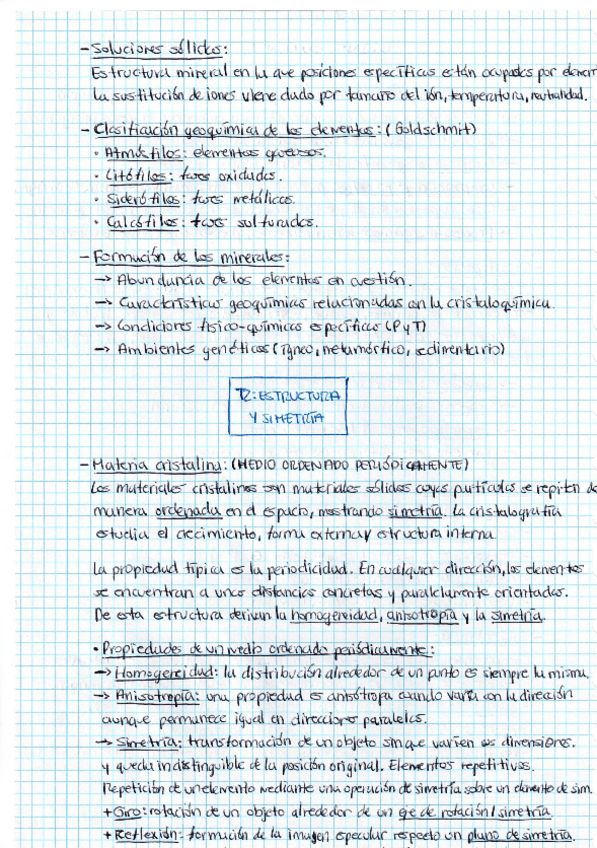 - Soluciones sólidas:
Estructura mineral en la que posiciones específicas están ocupadas por
la sustitución de iones viene dado por tamaño del ión, temperatura, neutralidad.
- Clasificación geoquímica de los elementos: (Goldschmit)
· Atmófilos: elementos gaseosos.
· Litófilos: fases oxidadas.
· Siderófilos: fases metálicas.
· Calcófilos: fases sulfuradas.
- Formación de los minerales:
→ Abundancia de los elementos en cuestión.
→ Características geoquímicas relacionadas con la cristaloquímica.
→ Condiciones físico-químicas específicas (P y T)
→ Ambientes genéticos (ígneo, metamórfico, sedimentario)
T2: ESTRUCTURA
Y SIMETRÍA
- Materia cristalina: (MEDIO ORDENADO PERIÓDICAMENTE)
Los materiales cristalinos son materiales sólidos cuyas partículas se repiten de
manera ordenada en el espacio, mostrando simetría. La cristalografía
estudia el crecimiento, forma externa y estructura interna.
La propiedad típica es la periodicidad. En cualquier dirección, los elementos
se encuentran a unas distancias concretas y paralelamente orientados.
De esta estructura derivan la homogeneidad, anisotropía y la simetría.
· Propiedades de un medio ordenado periódicamente:
→ Homogeneidad: la distribución alrededor de un punto es siempre la misma.
→ Anisotropía: una propiedad es anisótropa cuando varía con la dirección
aunque permanece igual en direcciones paralelas.
→ Simetría: transformación de un objeto sin que varíen sus dimensiones.
y queda indistinguible de la posición original. Elementos repetitivos.
Repetición de un elemento mediante una operación de simetría sobre un elemento de sim.
+ Giro: rotación de un objeto alrededor de un eje de rotación/simetría.
+ Reflexión: formación de la imagen especular respecto un plano de simetría.